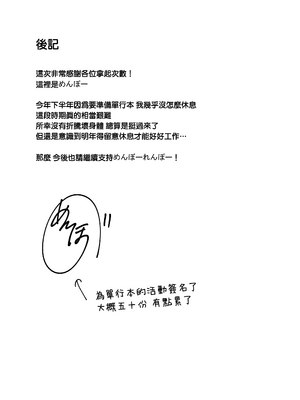 後記
這次非常感謝各位拿起次數！
這裡是めんぼー
今年下半年因爲要準備單行本 我幾乎沒怎麼休息
這段時期真的相當艱難
所幸沒有折騰壞身體 總算是挺過來了
但還是意識到明年得留意休息才能好好工作…
那麼 今後也請繼續支持めんぼーれんぼー！
めんぼー
為單行本的活動簽名了
大概五十份 有點累了